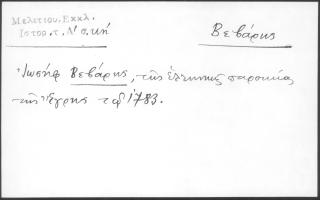 Μελετίου. Εκκλ.
Ιστορ. τ. Δ' σ. κή
Βεβάρης
Ἰωσήφ Βεβάρης, τῆς ἑλληνικῆς παροικίας
τῆς Ἔγρης τῷ 1783.